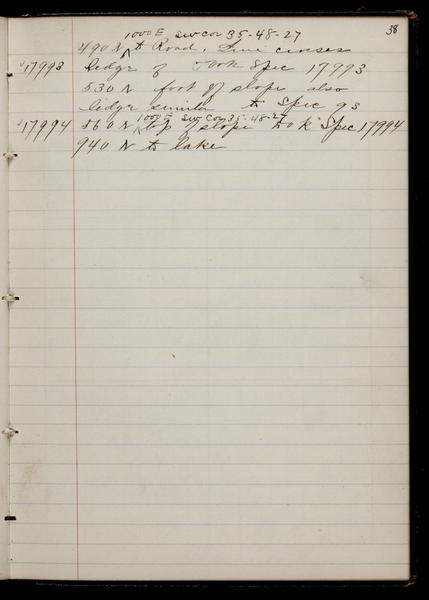 38
1000 E SW cor 35-48-27
490 N to Road. Line crosses
17993 ledge of Took Spec 17993
530 N foot of slope also
ledge similar to Spec 93
1000 E SW cor 35-48-27
17994 560 N top of slope Took Spec 17994
940 N to lake